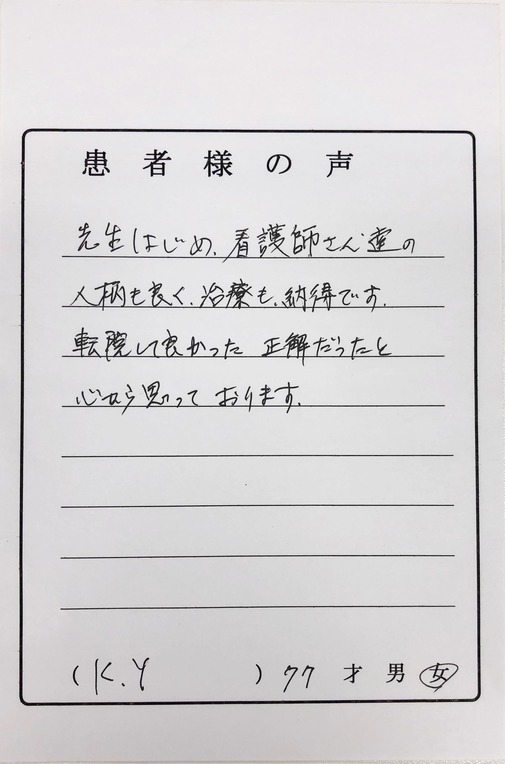 患者様の声
先生はじめ、看護師さん達の
人柄も良く、治療も、納得です。
転院して良かった 正解だったと
心から思って おります。
(K.Y ) 77 才 男 女